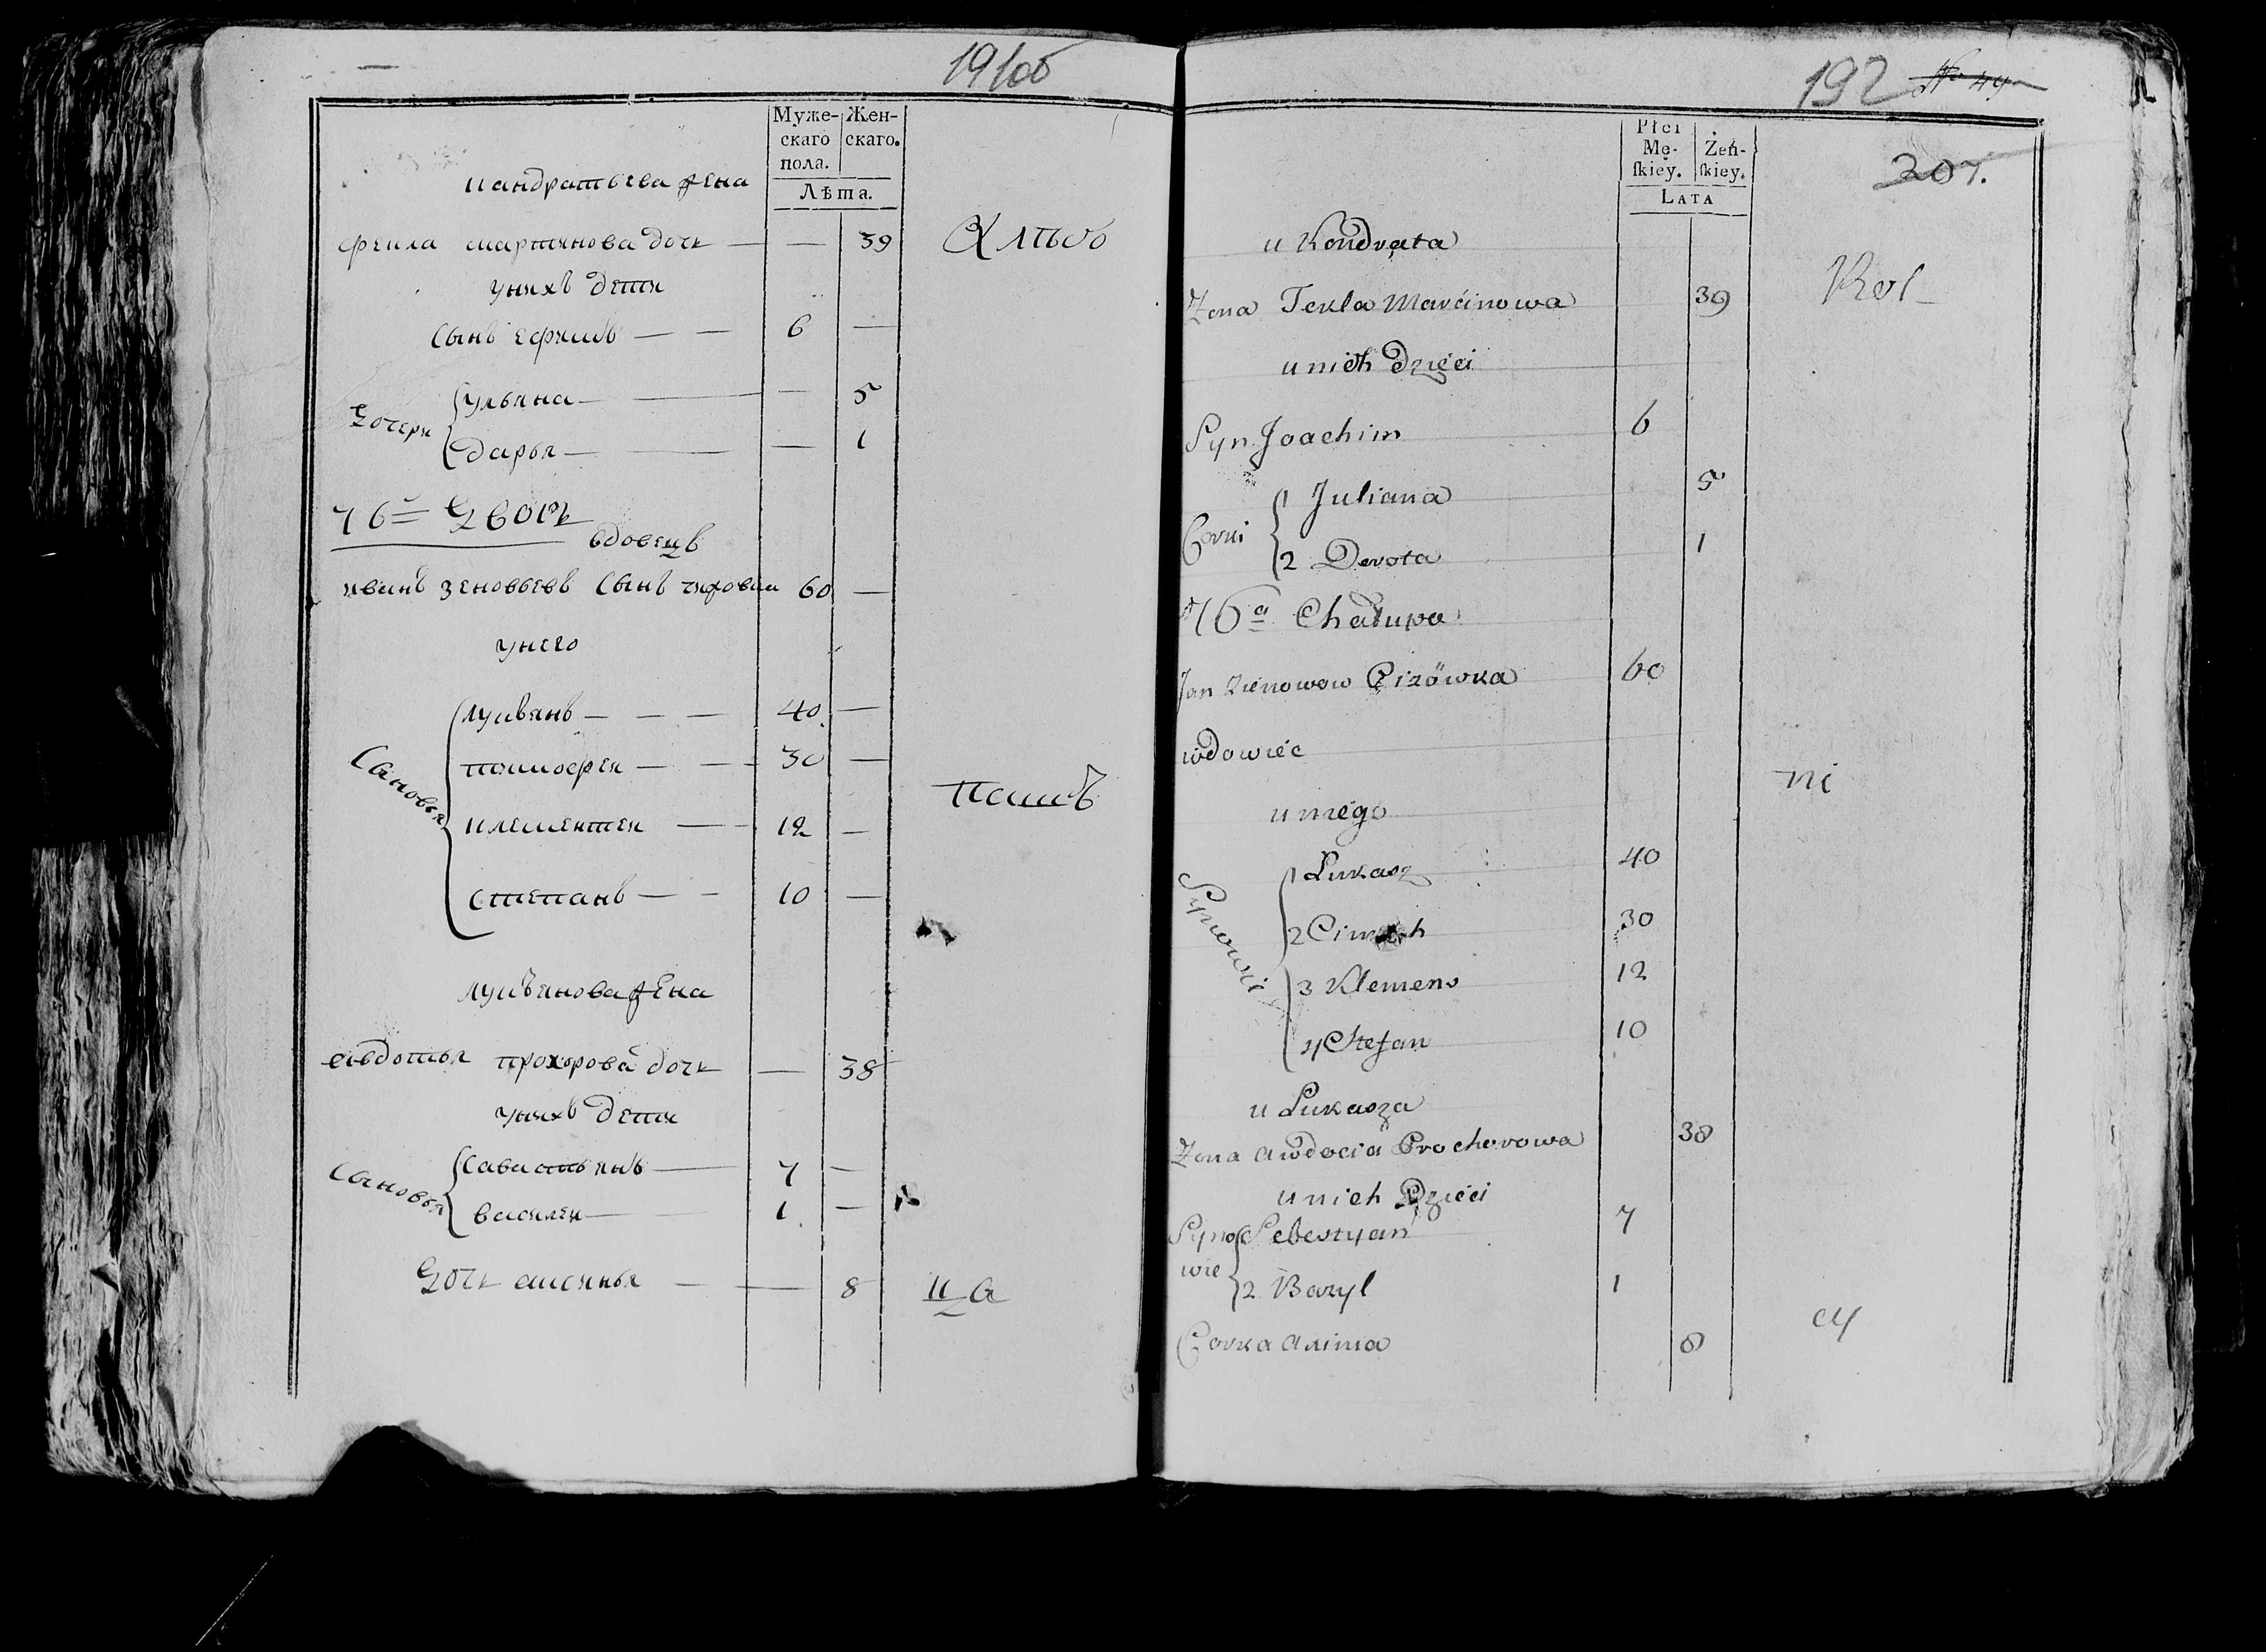 191об
Муже-
скаго
пола.
Жен-
скаго.
Лѣта.
кандратьева жена
фекла мартинова дочь — — 39
у нихъ дети
Сынъ ефимъ — — 6 —
Дочери
ульяна — — — 5
дарья — — — 1
76 = Дворъ
вдовецъ
иванъ зеновьевъ Сынъ чижовка 60 —
у него
Сановья
лукьянъ — — — 40 —
тимофей — — — 30 —
клементей — — 12 —
степанъ — — 10 —
лукьянова жена
авдотья прохорова дочь — 38
у нихъ дети
Сыновья
Савастьянъ — 7 —
василей — 1 —
Дочь аксинья — — 8
192 № 49
207.
Płci
Mę-
ſkiey.
Żeń-
ſkiey.
LATA
u Kondrata
Żona Tekla Marcinowa 39
u nich Dzieci
Syn Joachim 6
Corki
1 Juliana 5
2 Dorota 1
76a Chałupa
Jan Zienowow Czizówka 60
wdowiec
u niego
Synowie
1 Łukasz 40
2 Cim h 30
3 Klemens 12
4 Stefan 10
u Łukasza
Żona Awdocia Prochorowa 38
u nich Dzieci
Syno-
wie
Sebestyan 7
2 Bazyl 1
Corka Axinia 8